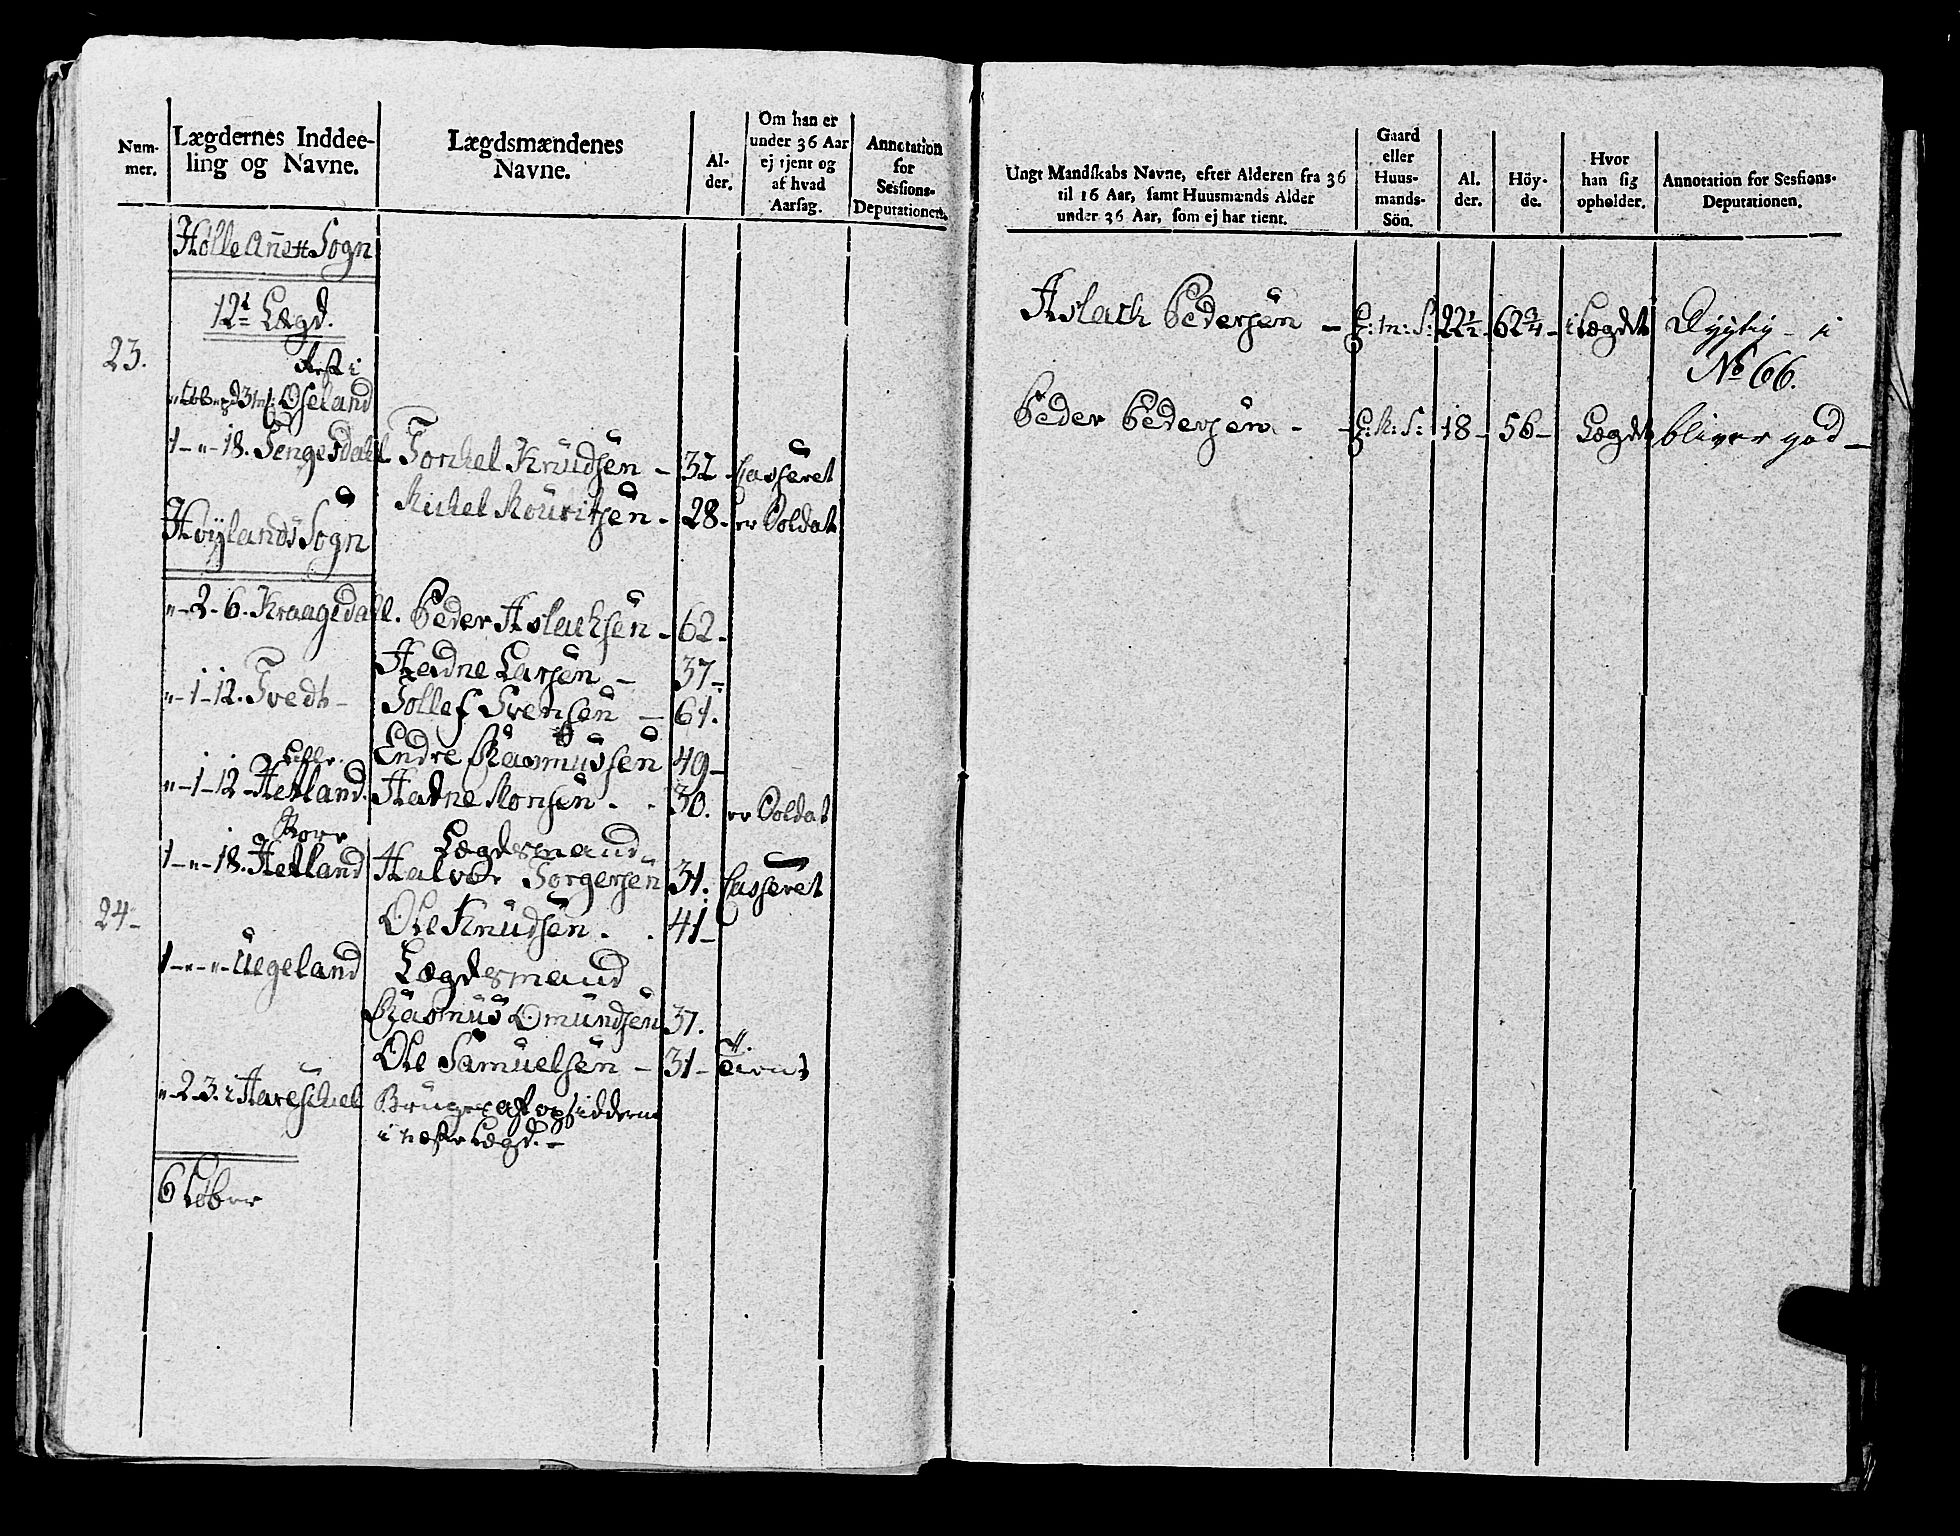 Num-
mer.
Lægdernes Inddee-
ling og Navne.
Lægdsmændenes
Navne.
Al-
der.
Om han er
under 36 Aar
ej tjent og
af hvad
Aarsag.
Annotation
for
Sessions-
Deputationen.
Holle Sogn
12te Lægd.
23.
Rest i
Oseland
1-"-18. Tengesdahl Torkel Knudsen - 32 Casseret
Mikel Mouritsen - 28. er Soldat
Høylands Sogn
"-2-6. Kraagedahl. Peder Aslachsen - 62-
Hadne Larsen - 37-
"-1-12. Tvedt- Tollef Svensen - 61.
Endre Rasmussen 49-
"-1-12 Hetland. Hadne Monsen . . 30. er Soldat
Lægdsmand
1-"-18. Hetland Halvor Torgersen 31. Casseret
24-
Ole Knudsen . . 41-
1-"-"-Uegeland Lægdsmand
Rasmus Omundsen 37.
Ole Samuelsen - 31- Tient
"-2-3. i Hareschel Bruges af opsidderne
i næste Lægd. -
6 Løber
Ungt Mandskabs Navne, efter Alderen fra 36
til 16 Aar, samt Huusmænds Alder
under 36 Aar, som ej har tient.
Gaard
eller
Huus-
mands-
Sön.
Al.
der.
Höy-
de.
Hvor
han sig
opholder.
Annotation for Sessions-
Deputationen.
Aslach Pedersen - G: m: S: 22 1/2 - 62 3/4 - i Lægdet Dygtig - i
No 66.
Peder Pedersen - - G: M: S: 18 - 56 - Lægdet bliver god -